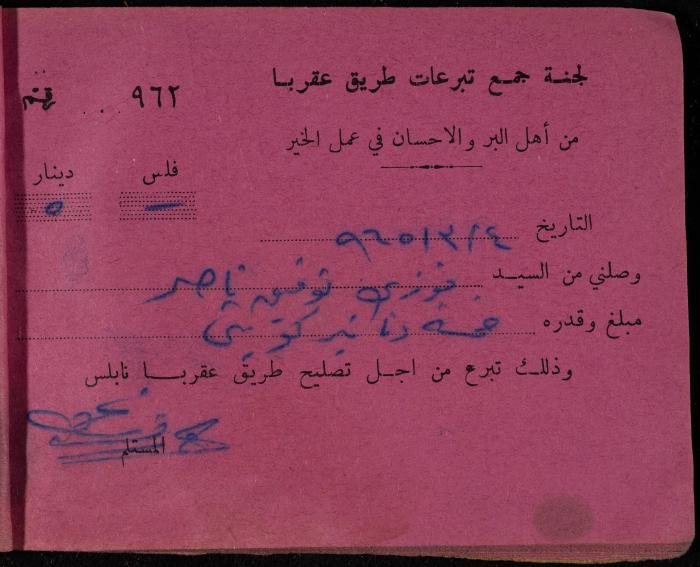 لجنة جمع تبرعات طريق عقربا
٩٦٢
من أهل البر والاحسان في عمل الخير
فلس دينار
— ٥
التاريخ ٩٦٥/٣/٤
وصلني من السيد فوزي توفيق ناصر
مبلغ وقدره خمسة دنانير كويتي
وذلك تبرع من اجل تصليح طريق عقربا نابلس
المستلم